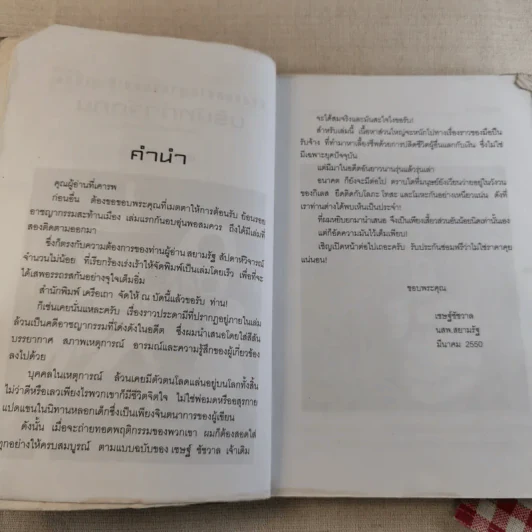 คำนำ
คุณผู้อ่านที่เคารพ
ก่อนอื่น ต้องขอขอบพระคุณที่เมตตาให้การต้อนรับ ย้อนรอย
อาชญากรรมสะท้านเมือง เล่มแรกกันอบอุ่นพอสมควร ถึงได้มีเล่มที่
สองติดตามออกมา
ซึ่งก็ตรงกับความต้องการของท่านผู้อ่าน สยามรัฐ สัปดาหวิจารณ์
จำนวนไม่น้อย ที่เรียกร้องเร่งเร้าให้จัดพิมพ์เป็นเล่มโดยเร็ว เพื่อที่จะ
ได้เสพอรรถรสกันอย่างจุใจเต็มอิ่ม
สำนักพิมพ์ เครือเถา จัดให้ ณ บัดนี้แล้วขอรับ ท่าน!
ก็เช่นเคยนั่นแหละครับ เรื่องราวประดามีที่ปรากฏอยู่ภายในเล่ม
ล้วนเป็นคดีอาชญากรรมที่โด่งดังในอดีต ซึ่งผมนำเสนอโดยใส่สีสัน
บรรยากาศ สภาพเหตุการณ์ อารมณ์และความรู้สึกของผู้เกี่ยวข้อง
ลงไปด้วย
บุคคลในเหตุการณ์ ล้วนเคยมีตัวตนโลดแล่นอยู่บนโลกทั้งสิ้น
ไม่ว่าดีหรือเลวเพียงไรพวกเขาก็มีชีวิตจิตใจ ไม่ใช่พ่อมดหรืออสุรกาย
แปดแขนในนิทานหลอกเด็กซึ่งเป็นเพียงจินตนาการของผู้เขียน
ดังนั้น เมื่อจะถ่ายทอดพฤติกรรมของพวกเขา ผมก็ต้องสอดใส่
ทุกอย่างให้ครบสมบูรณ์ ตามแบบฉบับของ เชษฐ์ ชัชวาล เจ้าเดิม
จะได้สมจริงและมันสะใจไงขอรับ!
สำหรับเล่มนี้ เนื้อหาส่วนใหญ่จะหนักไปทางเรื่องราวของมือปืน
รับจ้าง ที่ทำมาหาเลี้ยงชีพด้วยการปลิดชีวิตผู้อื่นแลกกับเงิน ซึ่งไม่ใช่
มีเฉพาะยุคปัจจุบัน
แต่มีมาในอดีตอันยาวนานรุ่นแล้วรุ่นเล่า
อนาคต ก็ยังจะมีต่อไป ตราบใดที่มนุษย์ยังเวียนว่ายอยู่ในวังวน
ของกิเลส ยึดติดกับโลภะ โทสะ และโมหะกันอย่างเหนียวแน่น ดังที่
เราท่านต่างได้พบเห็นเป็นประจำ!
ที่ผมหยิบยกมานำเสนอ จึงเป็นเพียงเสี้ยวส่วนอันน้อยนิดเท่านั้นเอง
แต่ก็อัดความมันไว้เต็มเพียบ!
เชิญเปิดหน้าต่อไปเถอะครับ รับประกันซ่อมฟรีว่าไม่ใช่ราคาคุย
แน่นอน!
ขอบพระคุณ
เชษฐ์ชัชวาล
นสพ.สยามรัฐ
มีนาคม 2550